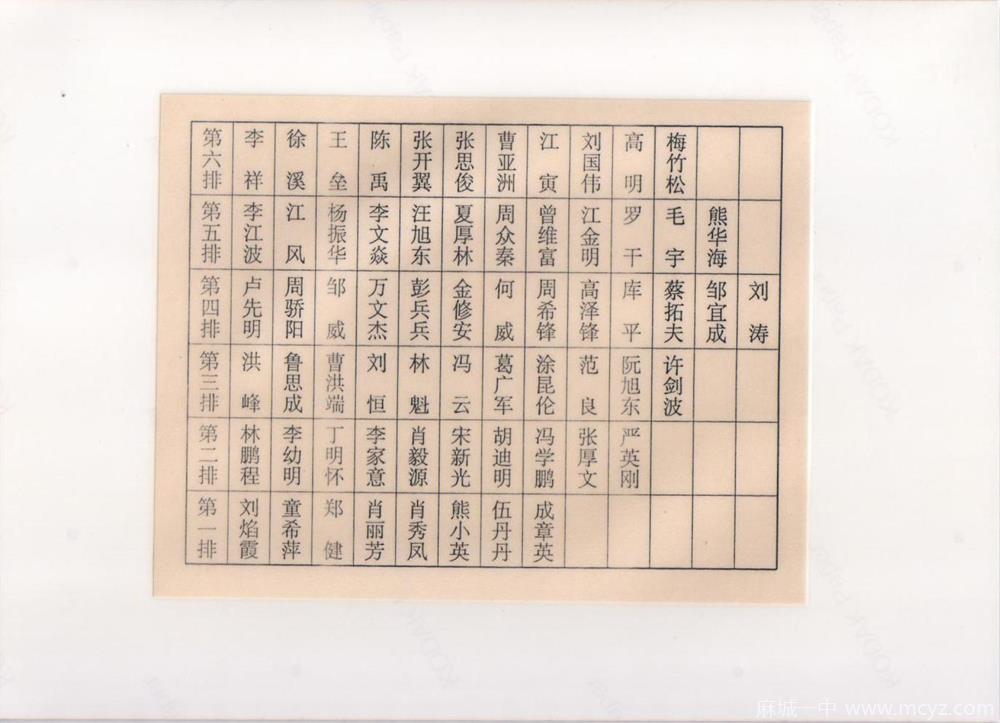 第六排 李祥 徐溪 王垒 陈禹 张开翼 张思俊 曹亚洲 江寅 刘国伟 高明 梅竹松
第五排 李江波 江风 杨振华 李文焱 汪旭东 夏厚林 周众秦 曾维富 江金明 罗干 毛宇 熊华海
第四排 卢先明 周骄阳 邹威 万文杰 彭兵兵 金修安 何威 周希锋 高泽锋 库平 蔡拓夫 邹宜成 刘涛
第三排 洪峰 鲁思成 曹洪端 刘恒 林魁 冯云 葛广军 涂昆伦 范良 阮旭东 许剑波
第二排 林鹏程 李幼明 丁明怀 李家意 肖毅源 宋新光 胡迪明 冯学鹏 张厚文 严英刚
第一排 刘焰霞 童希萍 郑健 肖丽芳 肖秀凤 熊小英 伍丹丹 成章英
麻城一中 www.mcyz.com